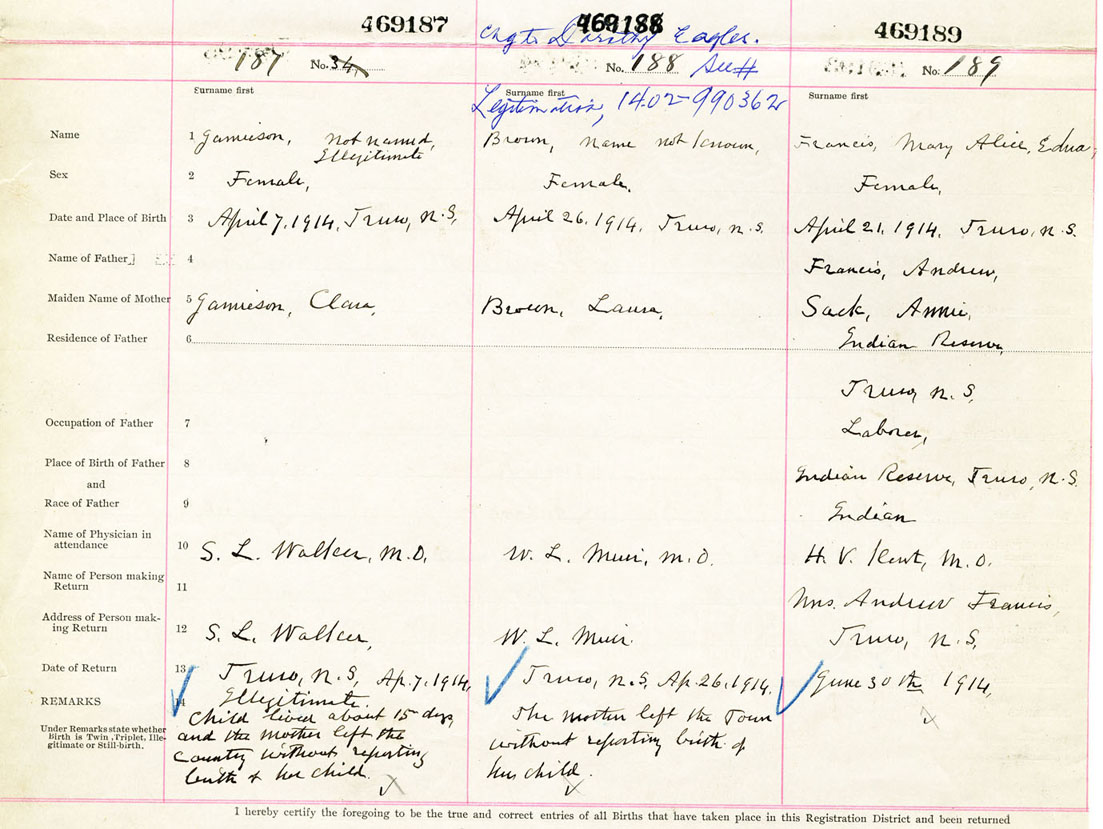 469187
469188
469189
chg to Dorothy Eagles.
187 No. 34
No. 188 See #
No. 189
Surname first
Surname first
Surname first
Legitimation, 1402-990362
Name 1 Jamieson, not named, Brown, name not known, Francis, Mary Alice, Edna,
Illegitimate
Sex 2 Female, Female. Female,
Date and Place of Birth 3 April 7, 1914, Truro, N.S, April 26, 1914, Truro, N.S. April 21, 1914, Truro, N.S.
Name of Father 4 Francis, Andrew,
Maiden Name of Mother 5 Jamieson, Clara, Brown, Laura, Sack, Annie,
Residence of Father 6 Indian Reserve,
Truro, N.S,
Occupation of Father 7 Laborer,
Place of Birth of Father 8 Indian Reserve, Truro, N.S.
and
Race of Father 9 Indian
Name of Physician in
attendance 10 S. L. Walker, M.D. W. L. Muir, M.D. H. V. Kent, M.D.
Name of Person making
Return 11 Mrs. Andrew Francis,
Address of Person mak-
ing Return 12 S. L. Walker, W. L. Muir. Truro, N.S,
Date of Return 13 Truro, N.S, Ap. 7, 1914, Truro, N.S, Ap. 26, 1914, June 30th 1914,
REMARKS 14 Illegitimate.
Under Remarks state whether
Birth is Twin, Triplet, Ille-
gitimate or Still-birth.
Child lived about 15 days,
and the mother left the
Country without reporting
birth of her child.
The mother left the Town
without reporting birth of
her child.
I hereby certify the foregoing to be the true and correct entries of all Births that have taken place in this Registration District and been returned